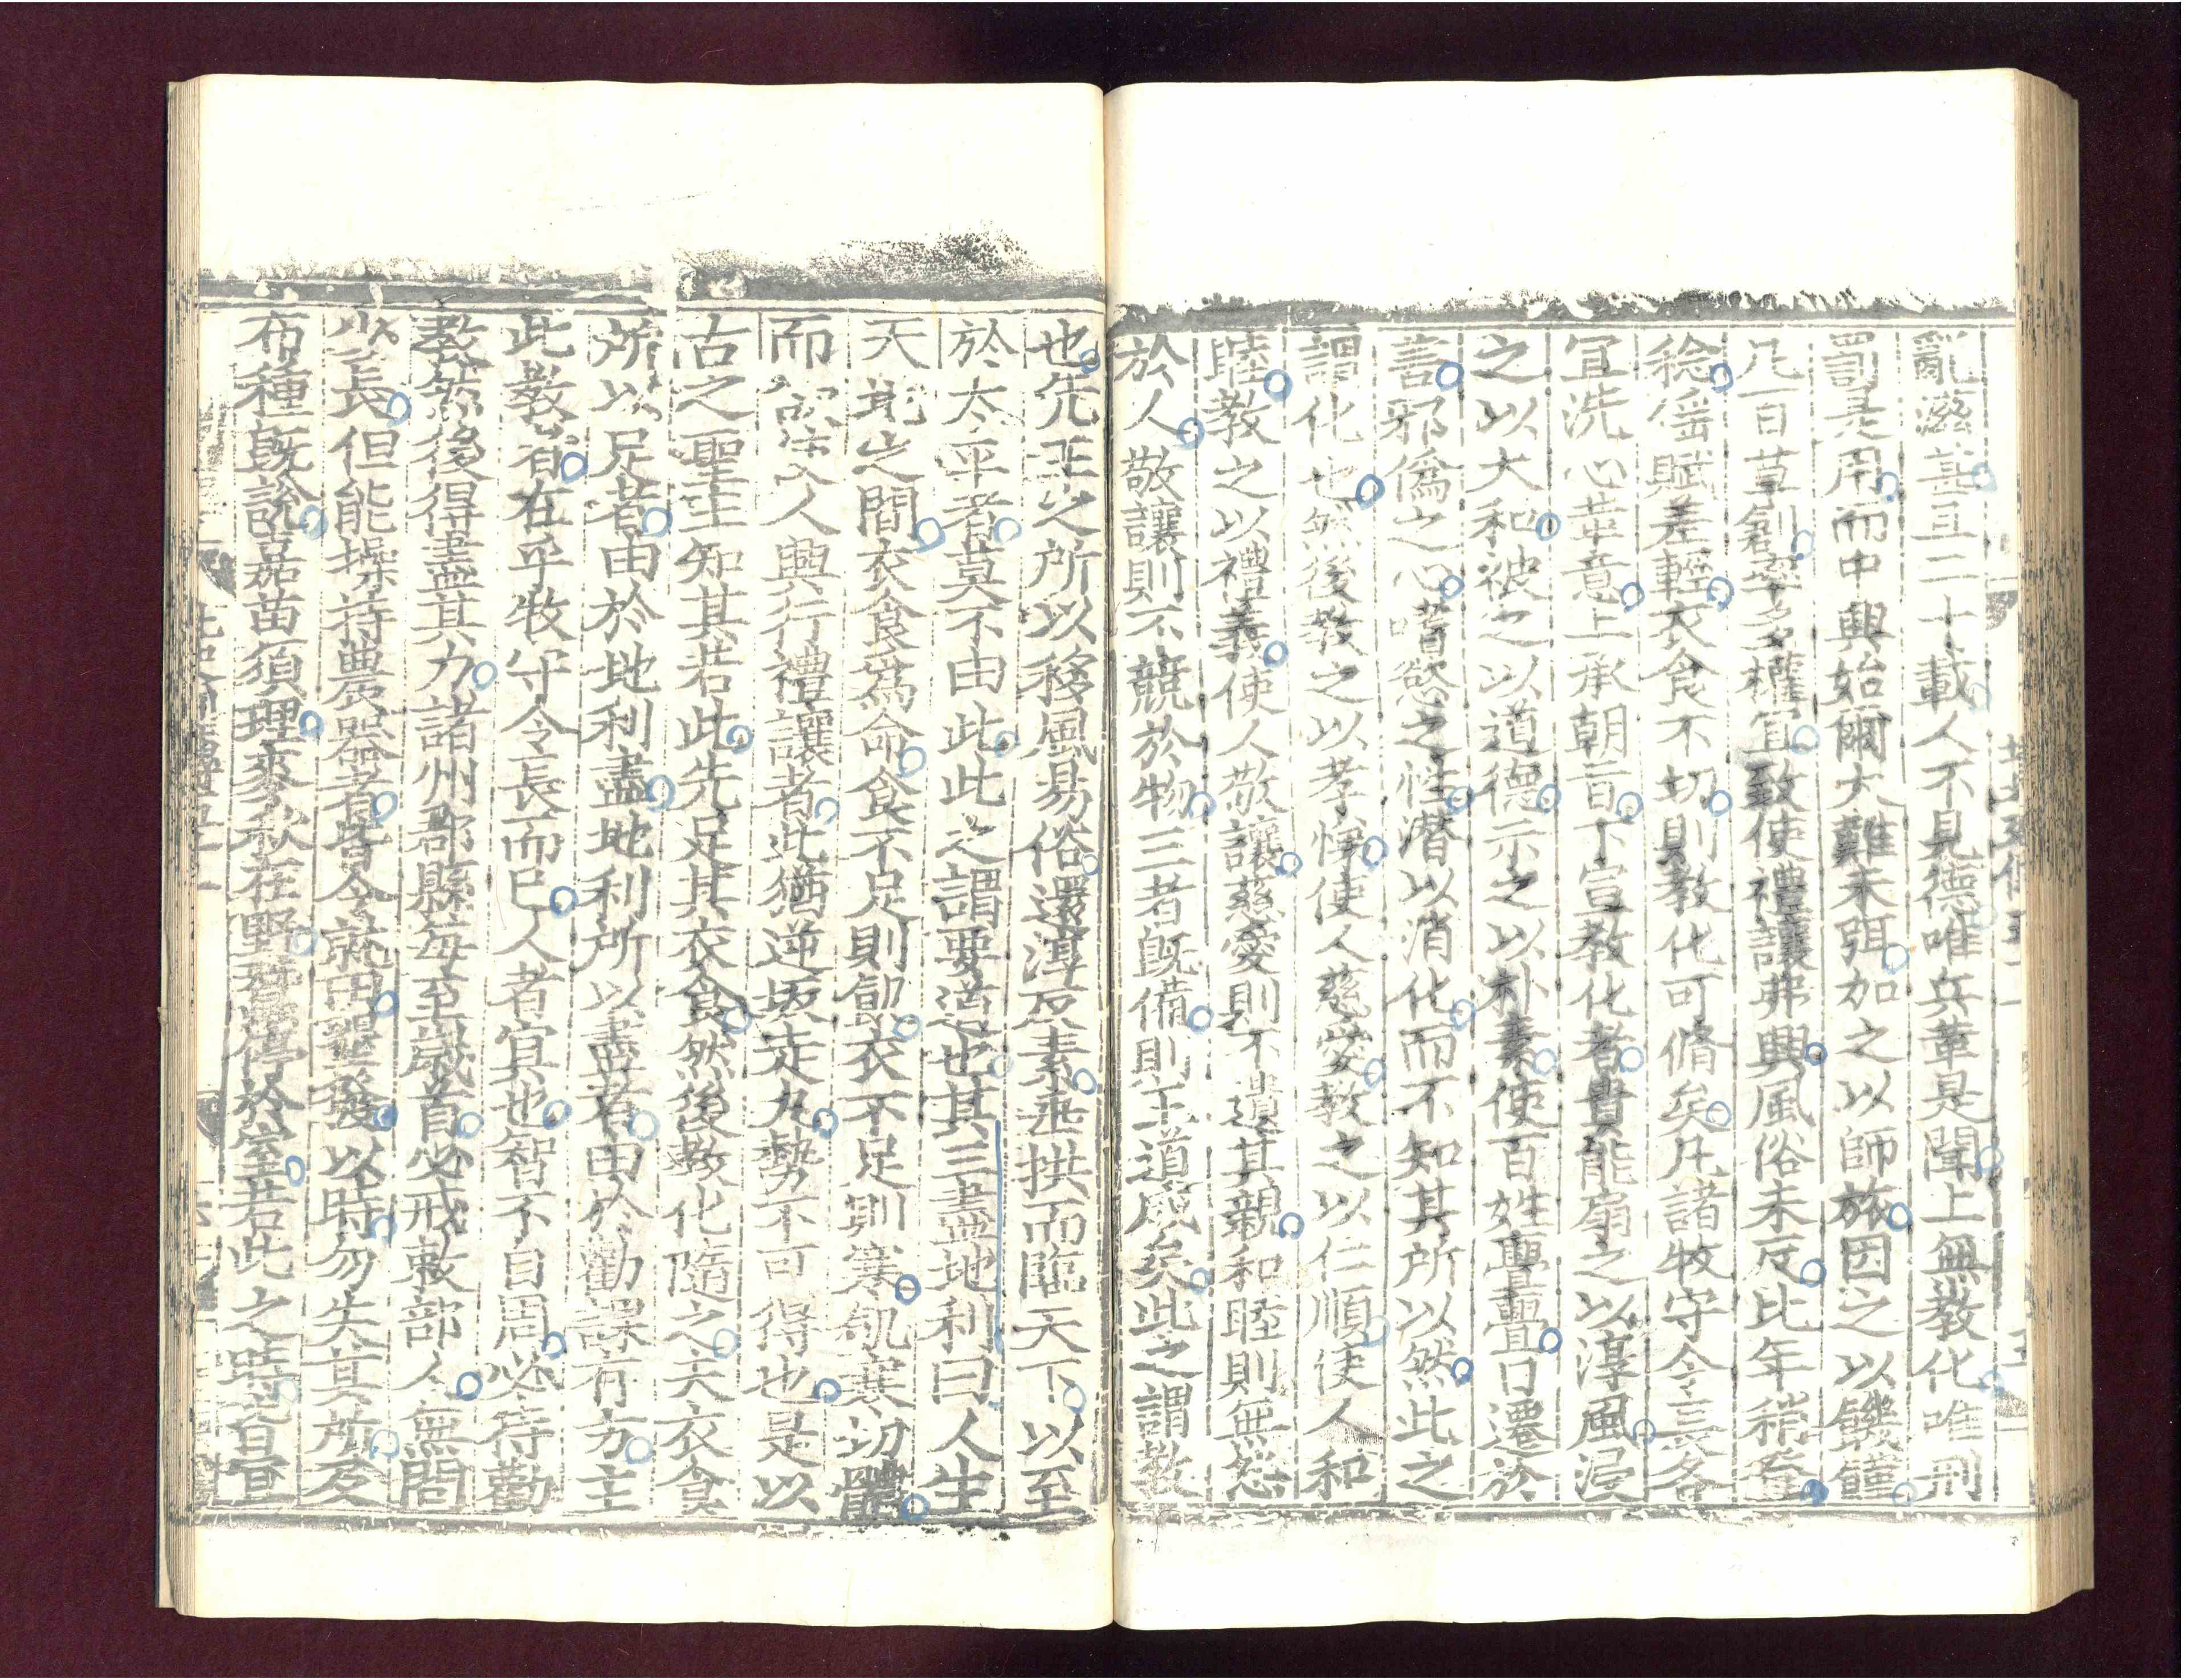 亂滋甚且二十載人不見德唯兵革是聞上無教化唯刑
罰是用而中興始爾大難未弭加之以師旅因之以饑饉
凡百草創率多權宜致使禮讓弗興風俗未反比年稍登
稔徭賦差輕衣食不切則教化可脩矣凡諸牧守令長各
宜洗心革意上承朝旨下宣教化者貴能扇之以淳風浸
之以大和被之以道德示之以朴素使百姓亹亹日遷於
善邪僞之心嗜慾之性潜以消化而不知其所以然此之
謂化也然後教之以孝悌使人慈愛教之以仁順使人和
睦教之以禮義使人敬讓慈愛則不遺其親和睦則無怨
於人敬讓則不競於物三者旣備則王道成矣此之謂教
也先王之所以移風易俗還淳反素垂拱而臨天下以至
於太平者莫不由此此之謂要道也其三盡地利曰人生
天地之間衣食爲命食不足則飢衣不足則寒飢寒切體
而欲人興行禮讓者此猶逆坂走丸勢不可得也是以
古之聖王知其若此先足其衣食然後教化隨之夫衣食
所以足者由於地利盡地利所以盡者由於勸課有方主
此教者在乎牧守令長而已人者冥也智不自周必待勸
教然後得盡其力諸州郡縣每至歲首必戒敕部人無問
少長但能操持農器者皆令就田墾發以時勿失其所及
布種旣訖嘉苗須理麥秋在野蠶停於室若此之時皆宜